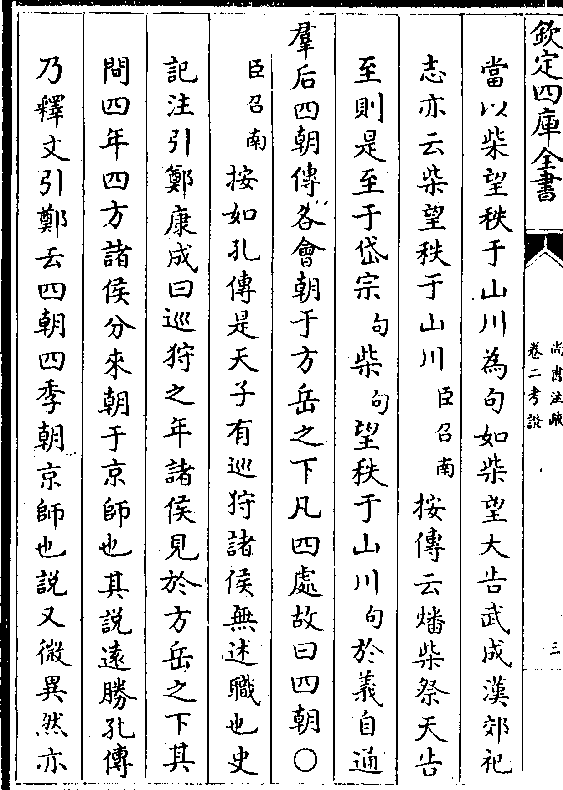 欽定四庫全書
尚書注疏
卷二考證
三
當以柴望秩于山川為句如柴望大告武成漢郊祀
志亦云柴望秩于山川臣召南按傳云燔柴祭天告
至則是至于岱宗句柴句望秩于山川句於義自通
羣后四朝傳各會朝于方岳之下凡四處故曰四朝〇
臣召南按如孔傳是天子有巡狩諸侯無述職也史
記注引鄭康成曰巡狩之年諸侯見於方岳之下其
間四年四方諸侯分來朝于京師也其說遠勝孔傳
乃釋文引鄭云四朝四季朝京師也説又微異然亦